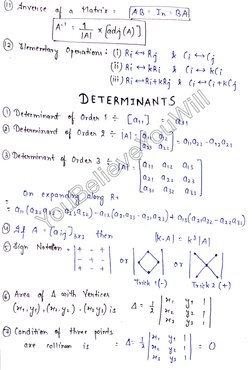 (11) Inverse of a Matrix = AB = In = BA
A⁻¹ = 1/|A| × [adj(A)]
(12) Elementary Operations: (i) Ri ↔ Rj & Ci ↔ Cj
(ii) Ri ↔ kRi & Ci ↔ kCi
(iii) Ri ↔ Ri + kRj & Ci ↔ Ci + kCj
DETERMINANTS
(1) Determinant of Order 1 ÷ [a11] = a11
(2) Determinant of Order 2 ÷ |A| = | a11 a12 | = a11a22 - a12a21
a21 a22
(3) Determinant of Order 3 ÷ |A| = a11 a12 a13
a21 a22 a23
a31 a32 a33
On expanding along R1
(4) If A = [aij]3x3 then |k.A| = k³|A|
(5) Sign Notation = + - +
- + -
+ - +
or
or
Trick 1 (-)
Trick 2 (+)
(6) Area of Δ with Vertices
(x1,y1), (x2,y2), (x3,y3) is Δ = 1/2 | x1 y1 1 |
x2 y2 1
x3 y3 1
(7) Condition of three points
are collinear is = Δ = 1/2 | x1 y1 1 | = 0
x2 y2 1
x3 y3 1
YouBelieveYouWill